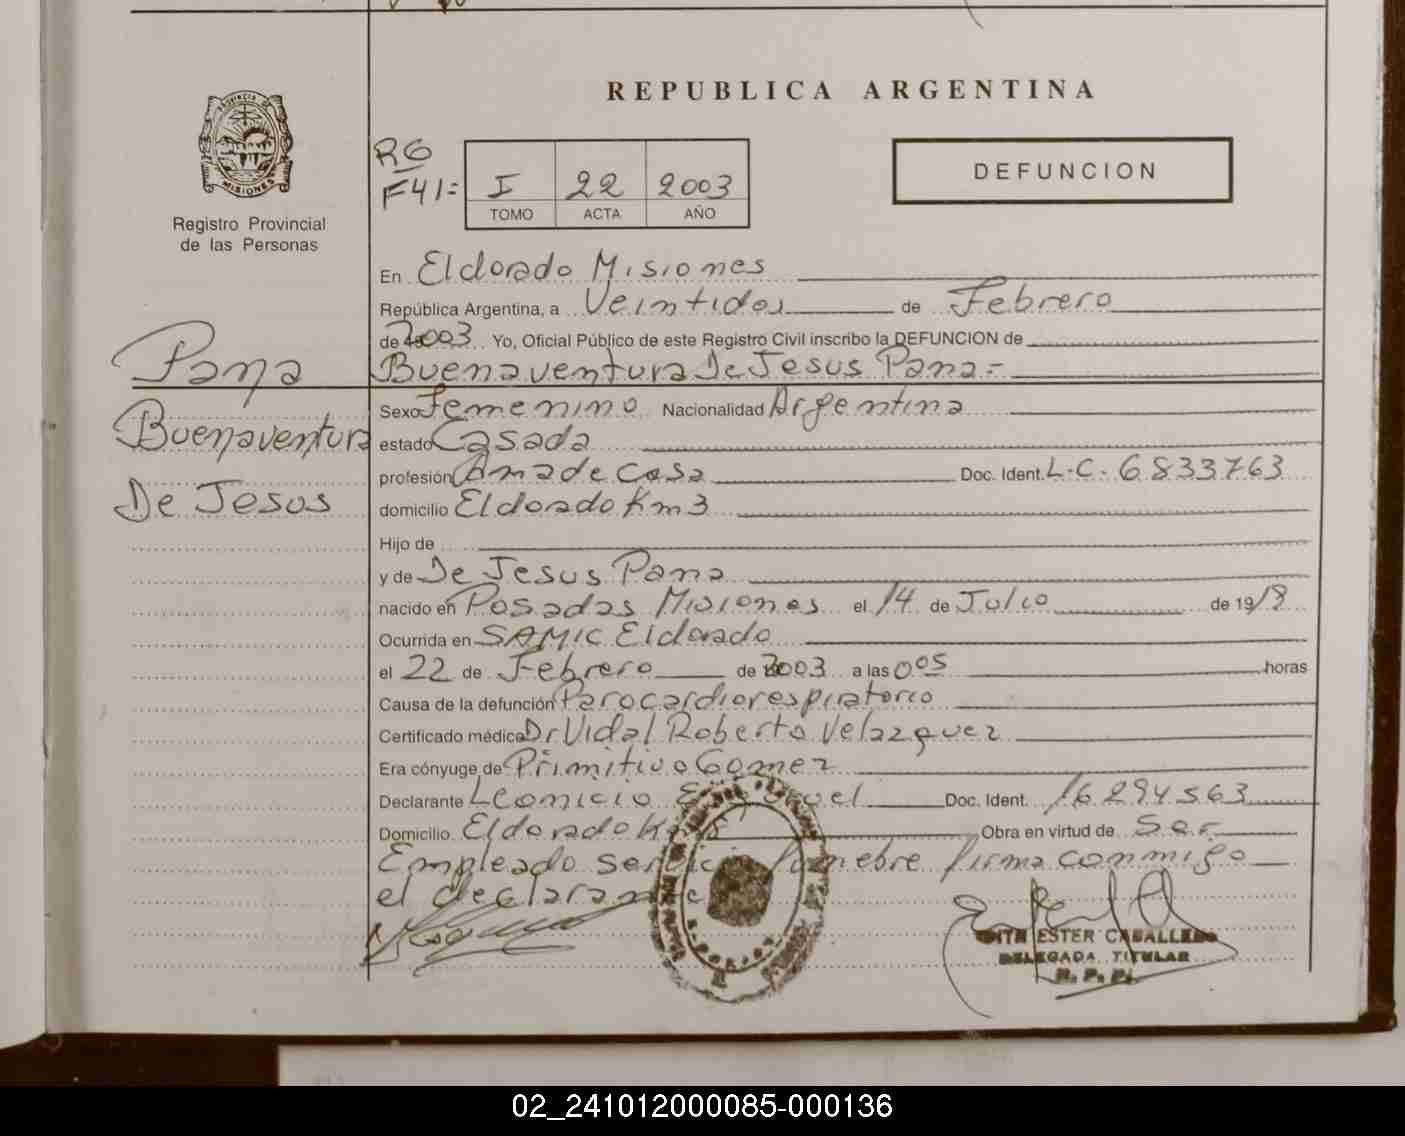 REPUBLICA ARGENTINA
PROVINCIA DE
MISIONES
Registro Provincial
de las Personas
RG
F41=
I 22 2003
TOMO ACTA AÑO
DEFUNCION
En Eldorado Misiones
República Argentina, a Veintidos de Febrero
de 2003 Yo, Oficial Público de este Registro Civil inscribo la DEFUNCION de
Buenaventura De Jesus Pana=
Pana
Buenaventura
De Jesus
Sexo Femenino Nacionalidad Argentina
estado Casada
profesión Ama de casa Doc. Ident. L.C. 6833763
domicilio Eldorado Km3
Hijo de
y de De Jesus Pana
nacido en Posadas Misiones el 14 de Julio de 19
Ocurrida en SAMIC Eldorado
el 22 de Febrero de 2003 a las 0 05 horas
Causa de la defunción Parocardiorespiratorio
Certificado médico Dr Vidal Roberto Velazquez
Era cónyuge de Primitivo Gomez
Declarante Leonicio Doc. Ident. 16294563
Domicilio Eldorado Obra en virtud de Ser
Empleado servicio funebre firma conmigo
el declarante
ESTER CABALLERO
DELEGADA TITULAR
R. P. P.
02_241012000085-000136